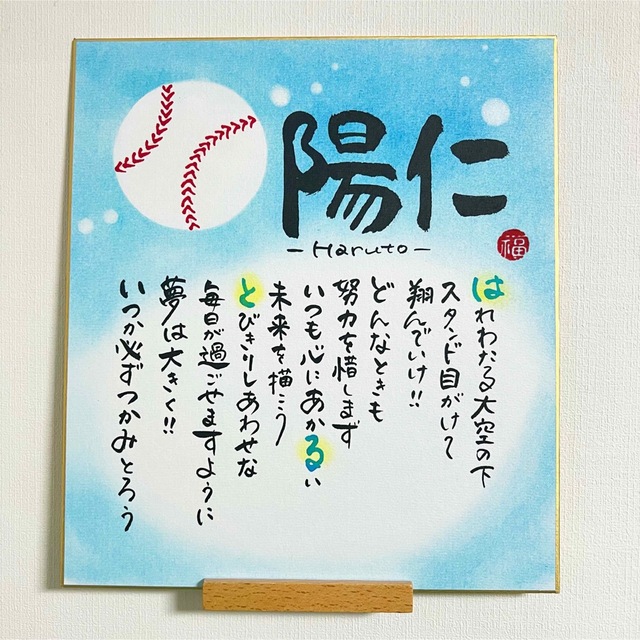 陽仁
-Haruto-
福
はれわたる大空の下
スタンド目がけて
翔んでいけ!!
どんなときも
努力を惜しまず
いつも心にあかるい
未来を描こう
とびきりしあわせな
毎日が過ごせますように
夢は大きく!!
いつか必ずつかみとろう